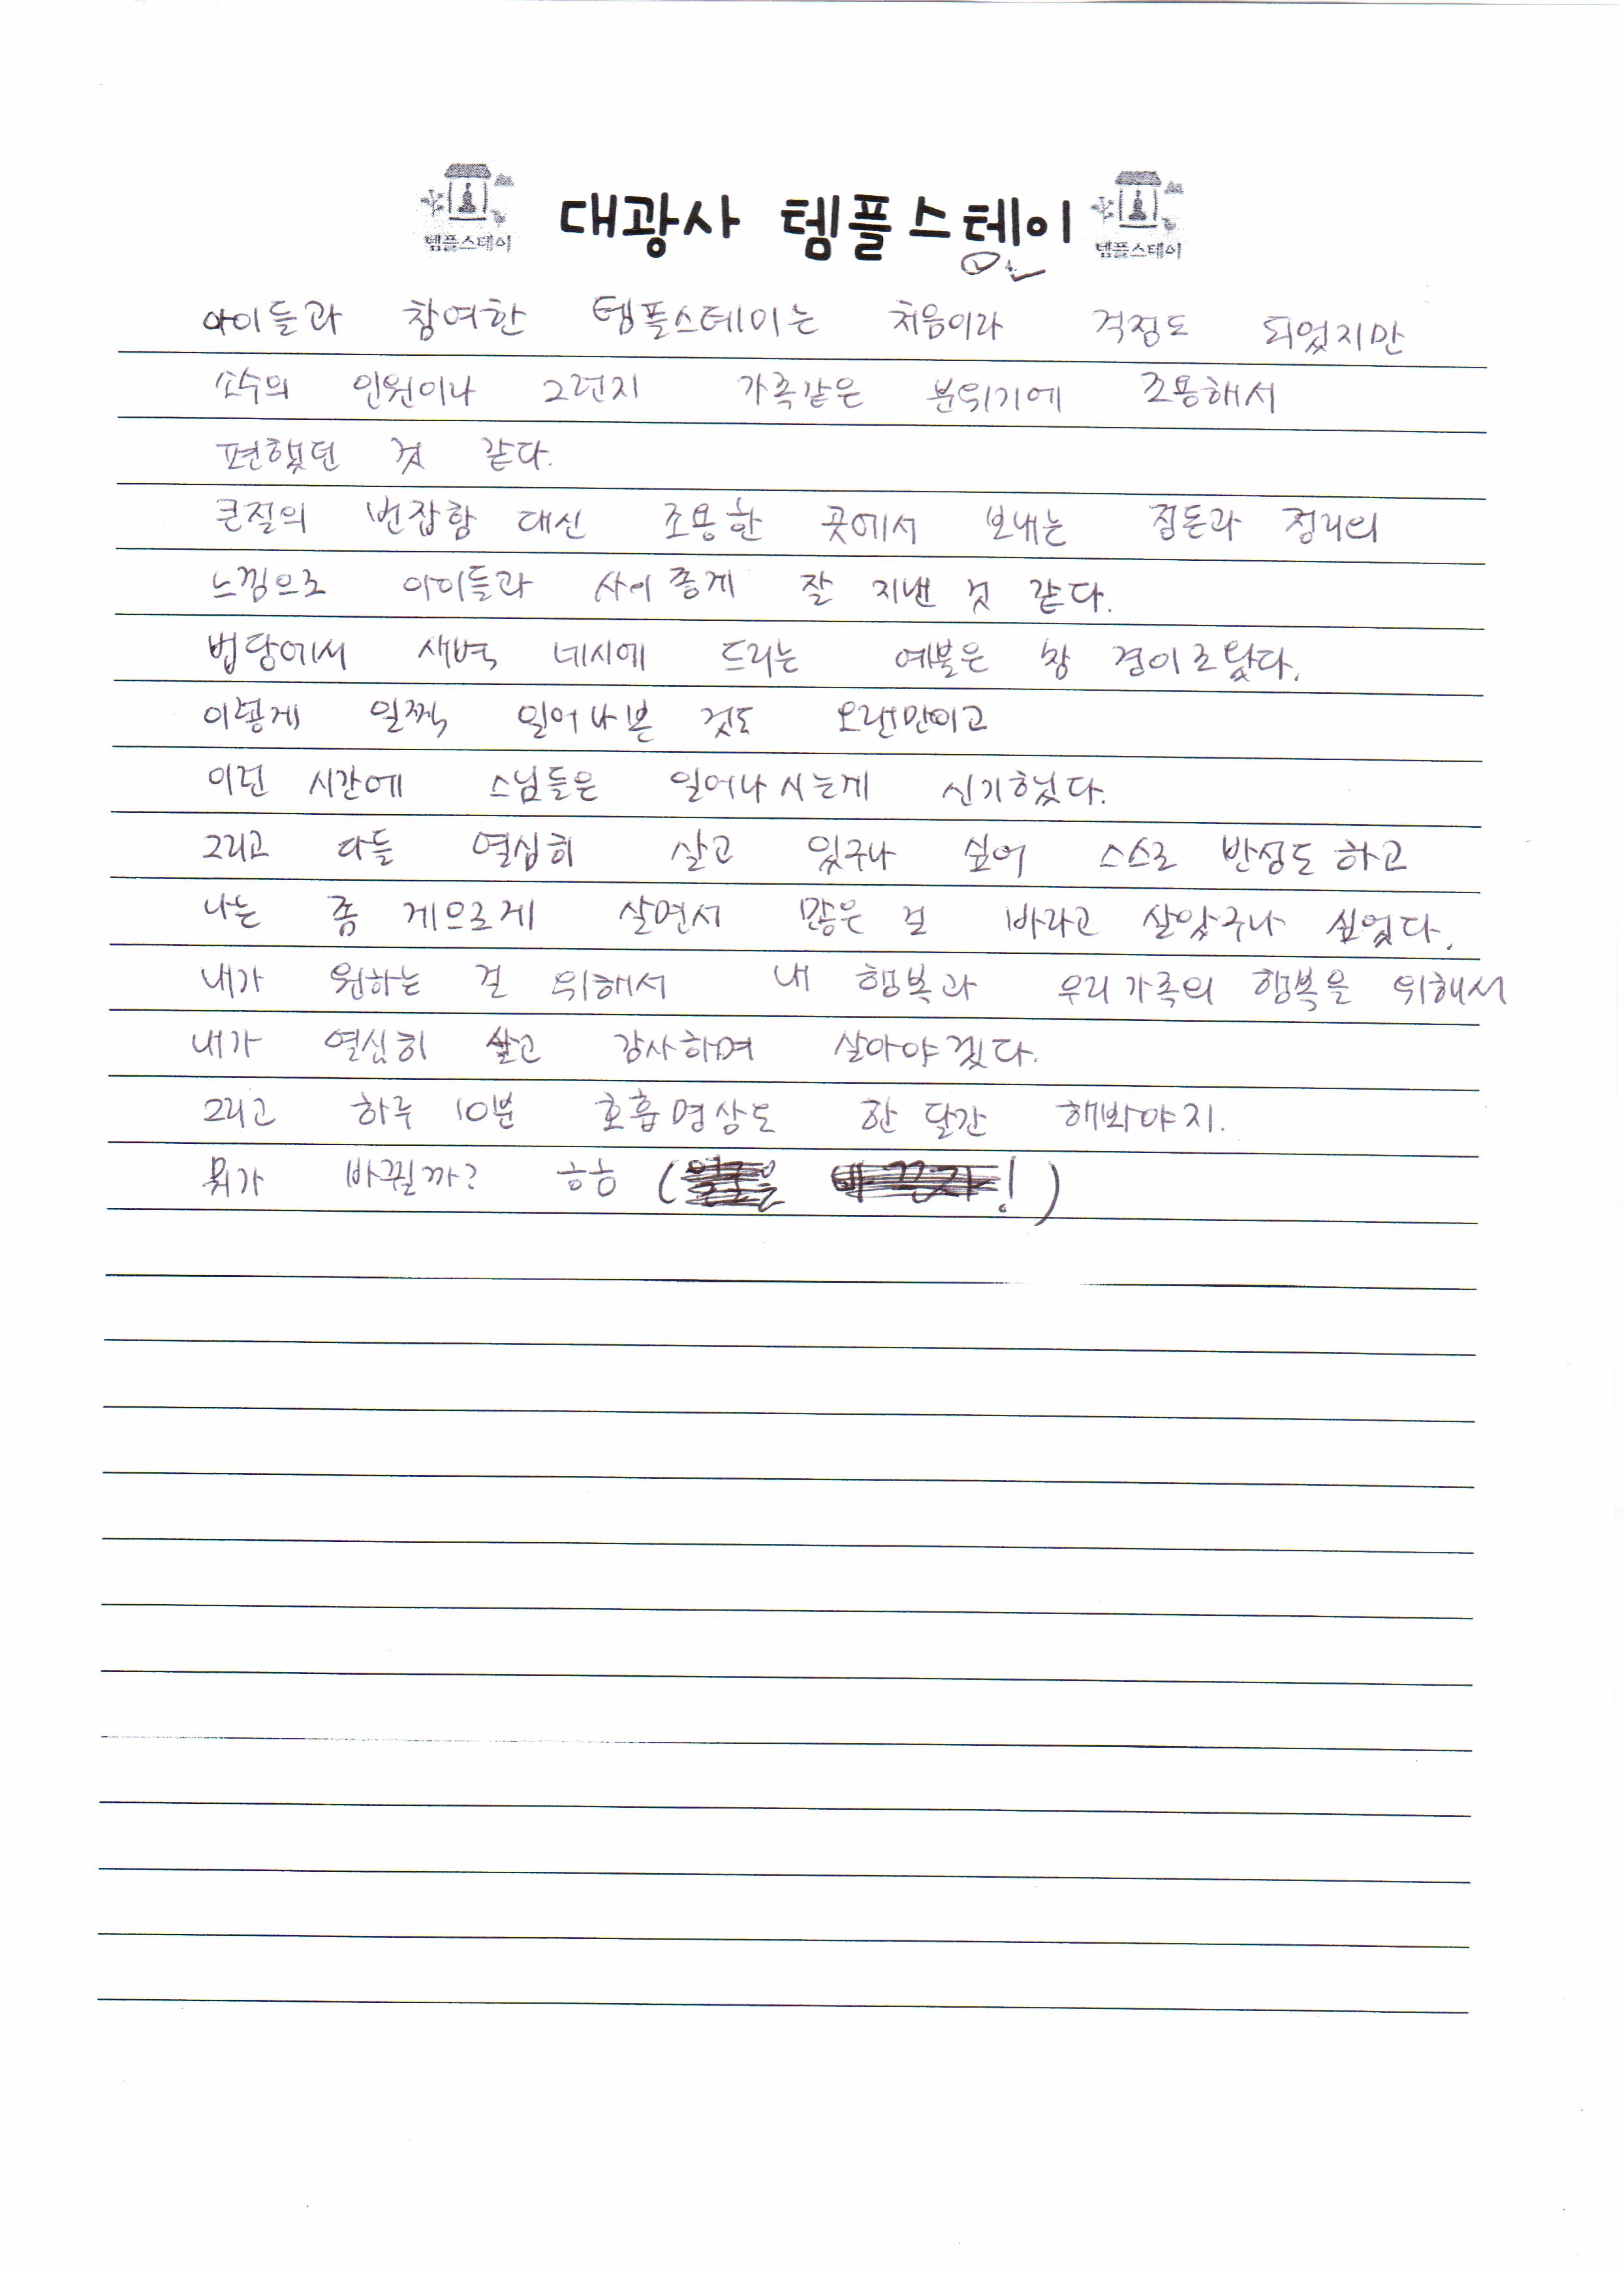 템플스테이 대광사 템플스테이 템플스테이
아이들과 참여한 템플스테이는 처음이라 걱정도 되었지만
소수의 인원이나 그런지 가족같은 분위기에 조용해서
편했던 것 같다.
큰절의 번잡함 대신 조용한 곳에서 보내는 정돈과 정리의
느낌으로 아이들과 사이좋게 잘 지낸 것 같다.
법당에서 새벽 네시에 드리는 예불은 참 경이로왔다.
이렇게 일찍 일어나본 것도 오랜만이고
이런 시간에 스님들은 일어나시는게 신기했다.
그리고 다들 열심히 살고 있구나 싶어 스스로 반성도 하고
나는 좀 게으르게 살면서 많은 걸 바라고 살았구나 싶었다.
내가 원하는 걸 위해서 내 행복과 우리가족의 행복을 위해서
내가 열심히 살고 감사하며 살아야겠다.
그리고 하루 10분 호흡명상도 한 달간 해봐야지.
뭐가 바뀔까? ㅎㅎ ( ! )